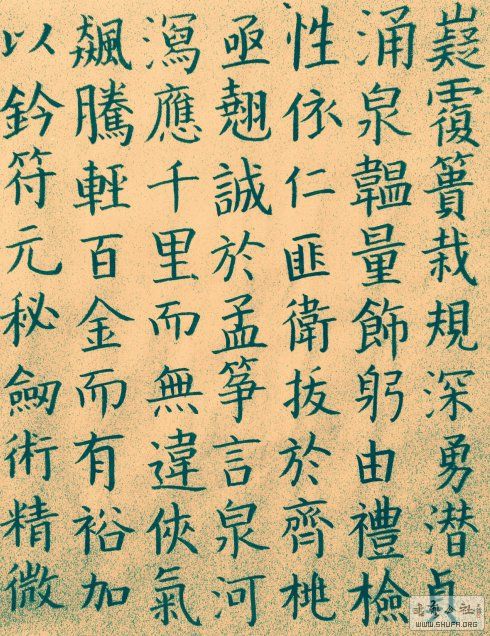 嶷覆簣栽規深勇潛
涌泉韞量飾躬由禮檢
性依仁匪衛拔於齊桃
亟翹誠於孟筝言泉河
瀉應千里而無違俠氣
飆騰輕百金而有裕加
以鈐符元秘劒術精微
WWW.SHUFA.ORG